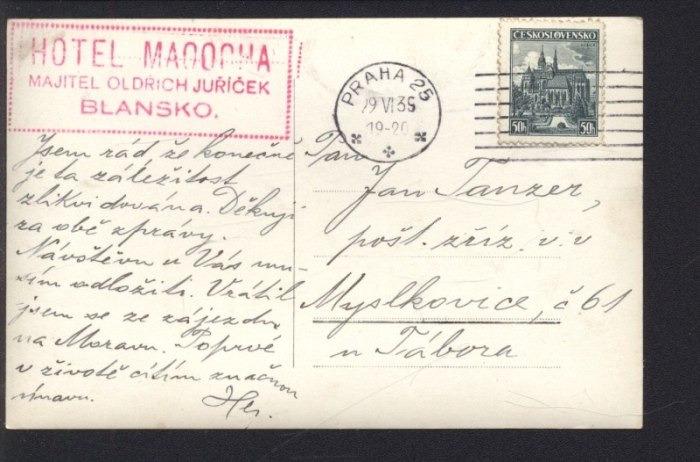 HOTEL MACOCHA
MAJITEL OLDŘICH JUŘÍČEK
BLANSKO.
PRAHA 25
29 VI 36
19-20
ČESKOSLOVENSKO
50h 50h
Jsem rád že konečně
je ta záležitost
zlikvidována. Děkuji
za obě zpravy.
Návštěvu u Vás mu-
sím odložiti. Vrátil
jsem se ze zájezdu
na Moravu. Poprvé
v životě cítím značnou
únavu.
Pan
Jan Tanzer,
pošt. zříz. v. v
Myslkovice, č. 61
u Tábora